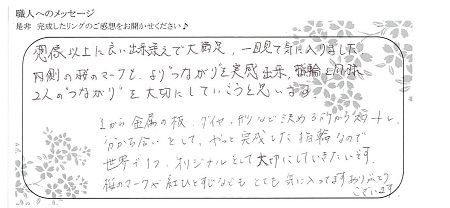 職人へのメッセージ
是非 完成したリングのご感想をお聞かせください♪
想像以上に良い出来栄えで大満足、一目見て気に入りました
内側の桜のマークも、より"つながり"を実感出来、指輪と同様、
2人の"つながり"を大切にしていこうと思います。
1から金属の板、ダイヤ、形など決める所からスタートし、
分かち合いとして、やっと完成した指輪なので
世界で1つ、オリジナルとして大切にしていきたいです。
桜のマークや紅ひとすじなども とても気に入ってます ありがとう
ございます